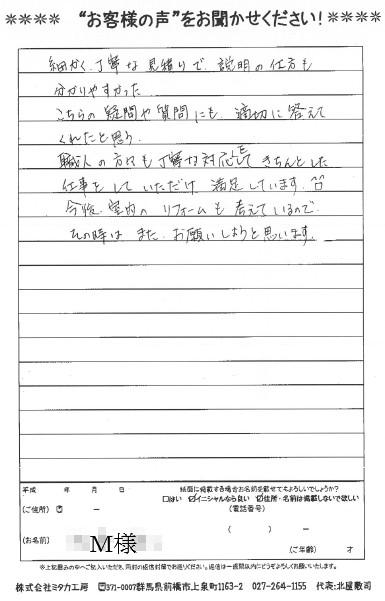 ＊＊＊＊ “お客様の声”をお聞かせください！ ＊＊＊＊
細かく、丁寧な見積りで、説明の仕方も
分かりやすかった。
こちらの疑問や質問にも、適切に答えて
くれたと思う。
職人の方々も丁寧な対応をしてきちんとした
仕事をしていただけ 満足しています。^^
今後、室内の リフォームも 考えているので、
その時は また、お願いしようと思います。
平成　　年　　月　　日
紙面に掲載する場合お名前を載せてもよろしいでしょうか？
□はい ☑イニシャルなら良い ☑住所・名前は掲載しないで欲しい
(ご住所) 〒　－
(電話番号)
(　　　)　－
(お名前) M様
(ご年齢)　才
※上記囲みの中へご記入いただき、同封の返信封筒でお送りください。返信は一週間以内にどうぞよろしくお願いいたします。
株式会社ミタカ工房 〒371-0007群馬県前橋市上泉町1163-2 027-264-1155 代表:北屋敷司